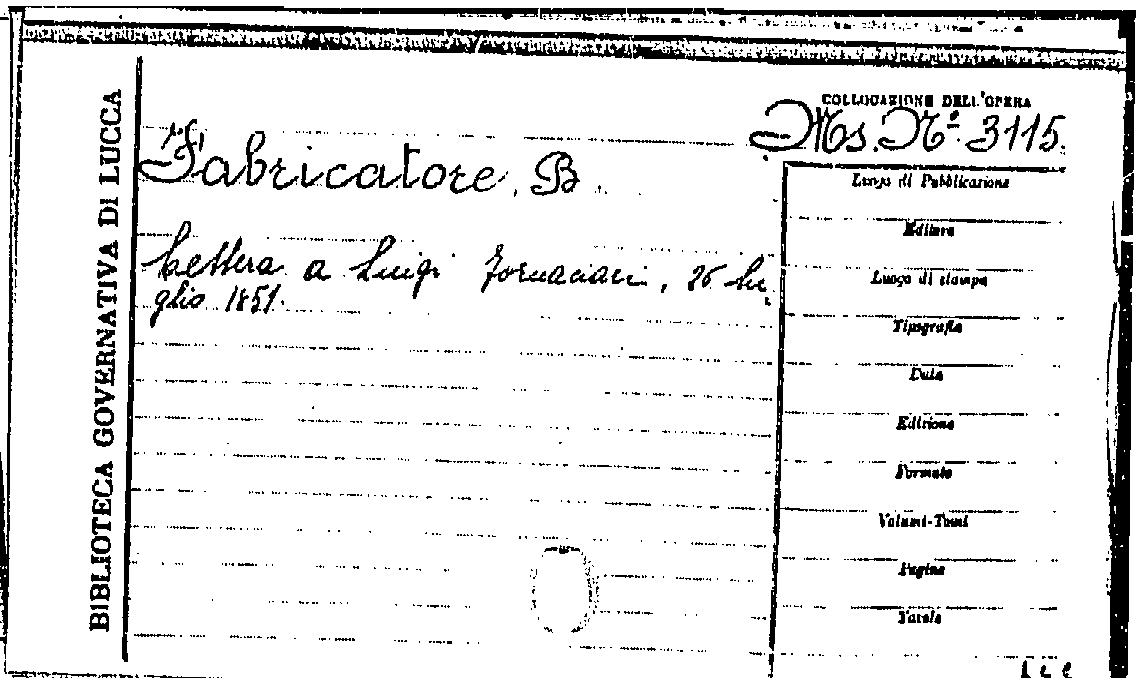 BIBLIOTECA GOVERNATIVA DI LUCCA
COLLOCAZIONE DELL'OPERA
Ms. N.º 3115.
Fabricatore, B.
Lettera a Luigi Fornaciari, 26 lu
glio 1851.
Luogo di Pubblicazione
Editore
Luogo di stampa
Tipografia
Data
Edizione
Formato
Volumi-Tomi
Pagine
Tavole